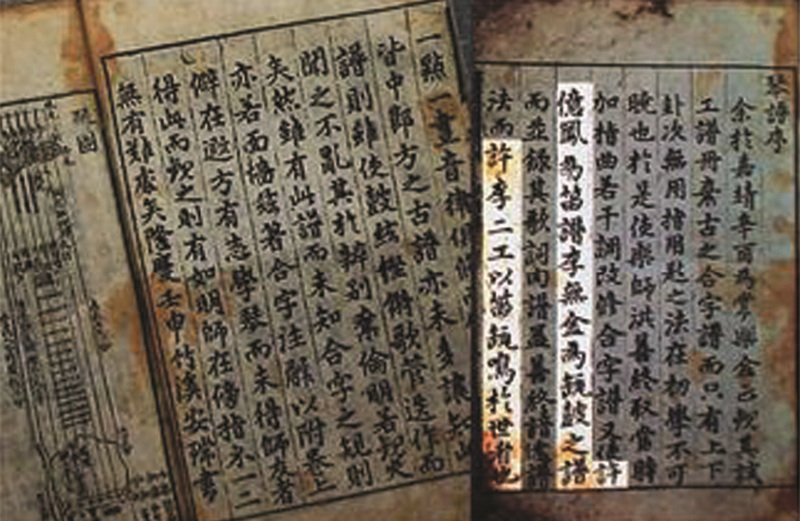 琴譜序
余於嘉靖辛酉爲掌樂僉正其試
工譜冊棄古之合字譜而只有上下
卦次無用指用匙之法在初學不可
曉也於是使樂師洪善終取當時
加指曲若干調改修合字譜又使許
億鳳爲笛譜李無金爲杖鼓之譜
而並錄其歌詞肉譜蓋善終譜
法而許李二工以笛杖鳴於世者也
一點一畫音律
皆中鄭方之古譜亦未多讓如此
譜則雖使鼓絃歌管迭作而
聞之不亂其於辨別奪倫明若觀火
矣然雖有此譜而未知合字之規則
亦若面墻玆著合字注解以附卷上
僻在遐方有志學琴而未得師友者
得此而觀之則有如明師在傍指示一二
無有難處矣隆慶壬申竹溪安瑺書
琴圖